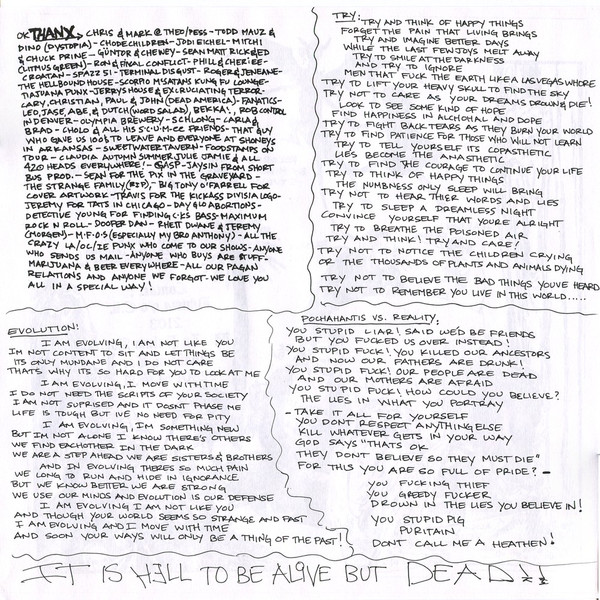 OK THANX, CHRIS & MARK @ THEO/PESS - TODD MAUZ &
DINO (DYSTOPIA) - CHODECHILDREN - JODI EICHEL - MITCHI
& CHUCK PRINE - GÜNTOR & CHEWEY - SEAN MATRICK & ED
(LITMUS GREEN) - RON & FINAL CONFLICT - PHIL & CHERIEE -
CROATAN - SPAZZ 51 - TERMINAL DISGUST - ROGER & JENEANE -
THE HELLBOUND HOUSE - SCORPIO M. SATANS KUNG FU LOUNGE -
TIAJUANA PUNX - JERRYS HOUSE & EXCRUCIATING TERROR -
CARY, CHRISTIAN, PAUL & JOHN (DEAD AMERICA) - FANATICS -
LEO, JASE, ABE, & DUTCH (WORD SALAD), BEKKA!, ROB CONTROL
IN DENVER - OLYMPIA BREWERY - SCHLONG - CARLA &
BRAD - CHOLO & ALL HIS S.C.U.M.C.Z. FRIENDS - THAT GUY
WHO GAVE US 100$ TO LEAVE AND EVERYONE AT SHONEYS
IN ARKANSAS - SWEETWATER TAVERN - FOODSTAMPS ON
TOUR - CLAUDIA AUTUMN SUMMER JULIE JAMIE & ALL
420 HEADS EVERYWHERE! - GASP - JAYSIN FROM SHORT
BUS PROD. - SEAN FOR THE PIX IN THE GRAVEYARD -
THE STRANGE FAMILY (RIP), BIG TONY O'FARRELL FOR
COVER ARTWORK - TRAVIS FOR THE KICKASS DIVISIA LOGO -
JEREMY FOR TATS IN CHICAGO - DAY GLO ABORTIONS -
DETECTIVE YOUNG FOR FINDING C.K'S BASS - MAXIMUM
ROCK N ROLL - DOOFER DAN - RHETT DWANE & JEREMY
(MORGEN) - M.F.O.S (ESPECIALLY MY BRO ANTHONY) - ALL THE
CRAZY LA/OC/IE PUNX WHO COME TO OUR SHOWS - ANYONE
WHO SENDS US MAIL - ANYONE WHO BUYS ARE STUFF -
MARIJUANA & BEER EVERYWHERE - ALL OUR PAGAN
RELATIONS AND ANYONE WE FORGOT - WE LOVE YOU
ALL IN A SPECIAL WAY!
TRY:
TRY AND THINK OF HAPPY THINGS
FORGET THE PAIN THAT LIVING BRINGS
TRY AND IMAGINE BETTER DAYS
WHILE THE LAST FEW JOYS MELT AWAY
TRY TO SMILE AT THE DARKNESS
AND TRY TO IGNORE
MEN THAT FUCK THE EARTH LIKE A LAS VEGAS WHORE
TRY TO LIFT YOUR HEAVY SKULL TO FIND THE SKY
TRY NOT TO CARE AS YOUR DREAMS DROWN & DIE!
LOOK TO SEE SOME KIND OF HOPE
FIND HAPPINESS IN ALCHOHAL AND DOPE
TRY TO FIGHT BACK TEARS AS THEY BURN YOUR WORLD
TRY TO FIND PATIENCE FOR THOSE WHO WILL NOT LEARN
TRY TO TELL YOURSELF ITS COPASTHETIC
LIES BECOME THE ANASTHETIC
TRY TO FIND THE COURAGE TO CONTINUE YOUR LIFE
TRY TO THINK OF HAPPY THINGS
THE NUMBNESS ONLY SLEEP WILL BRING
TRY NOT TO HEAR THIER WORDS AND LIES
TRY TO SLEEP A DREAMLESS NIGHT
CONVINCE YOURSELF THAT YOURE ALRIGHT
TRY TO BREATHE THE POISONED AIR
TRY AND THINK! TRY AND CARE!
TRY NOT TO NOTICE THE CHILDREN CRYING
OR THE THOUSANDS OF PLANTS AND ANIMALS DYING
TRY NOT TO BELIEVE THE BAD THINGS YOU'VE HEARD
TRY NOT TO REMEMBER YOU LIVE IN THIS WORLD.....
EVOLUTION:
I AM EVOLVING, I AM NOT LIKE YOU
IM NOT CONTENT TO SIT AND LET THINGS BE
ITS ONLY MUNDANE AND I DO NOT CARE
THATS WHY ITS SO HARD FOR YOU TO LOOK AT ME
I AM EVOLVING, I MOVE WITH TIME
I DO NOT NEED THE SCRIPTS OF YOUR SOCIETY
I AM NOT SUPRISED AND IT DOSNT PHASE ME
LIFE IS TOUGH BUT IVE NO NEED FOR PITY
I AM EVOLVING, IM SOMETHING NEW
BUT IM NOT ALONE I KNOW THERE'S OTHERS
WE FIND EACHOTHER IN THE DARK
WE ARE A STEP AHEAD WE ARE SISTERS & BROTHERS
AND IN EVOLVING THERES SO MUCH PAIN
WE LONG TO RUN AND HIDE IN IGNORANCE
BUT WE KNOW BETTER WE ARE STRONG
WE USE OUR MINDS AND EVOLUTION IS OUR DEFENSE
I AM EVOLVING I AM NOT LIKE YOU
AND THOUGH YOUR WORLD SEEMS SO STRANGE AND FAST
I AM EVOLVING AND I MOVE WITH TIME
AND SOON YOUR WAYS WILL ONLY BE A THING OF THE PAST!
POCHAHANTIS VS. REALITY:
YOU STUPID LIAR! SAID WE'D BE FRIENDS
BUT YOU FUCKED US OVER INSTEAD!
YOU STUPID FUCK! YOU KILLED OUR ANCESTORS
AND NOW OUR FATHERS ARE DRUNK!
YOU STUPID FUCK! OUR PEOPLE ARE DEAD
AND OUR MOTHERS ARE AFRAID
YOU STUPID FUCK! HOW COULD YOU BELIEVE?
THE LIES IN WHAT YOU PORTRAY
- TAKE IT ALL FOR YOURSELF
YOU DONT RESPECT ANYTHING ELSE
KILL WHATEVER GETS IN YOUR WAY
GOD SAYS "THATS OK
THEY DON'T BELIEVE SO THEY MUST DIE"
FOR THIS YOU ARE SO FULL OF PRIDE? -
YOU FUCKING THIEF
YOU GREEDY FUCKER
DROWN IN THE LIES YOU BELIEVE IN!
YOU STUPID PIG
PURITAIN
DONT CALL ME A HEATHEN!
IT IS HELL TO BE ALIVE BUT DEAD!!